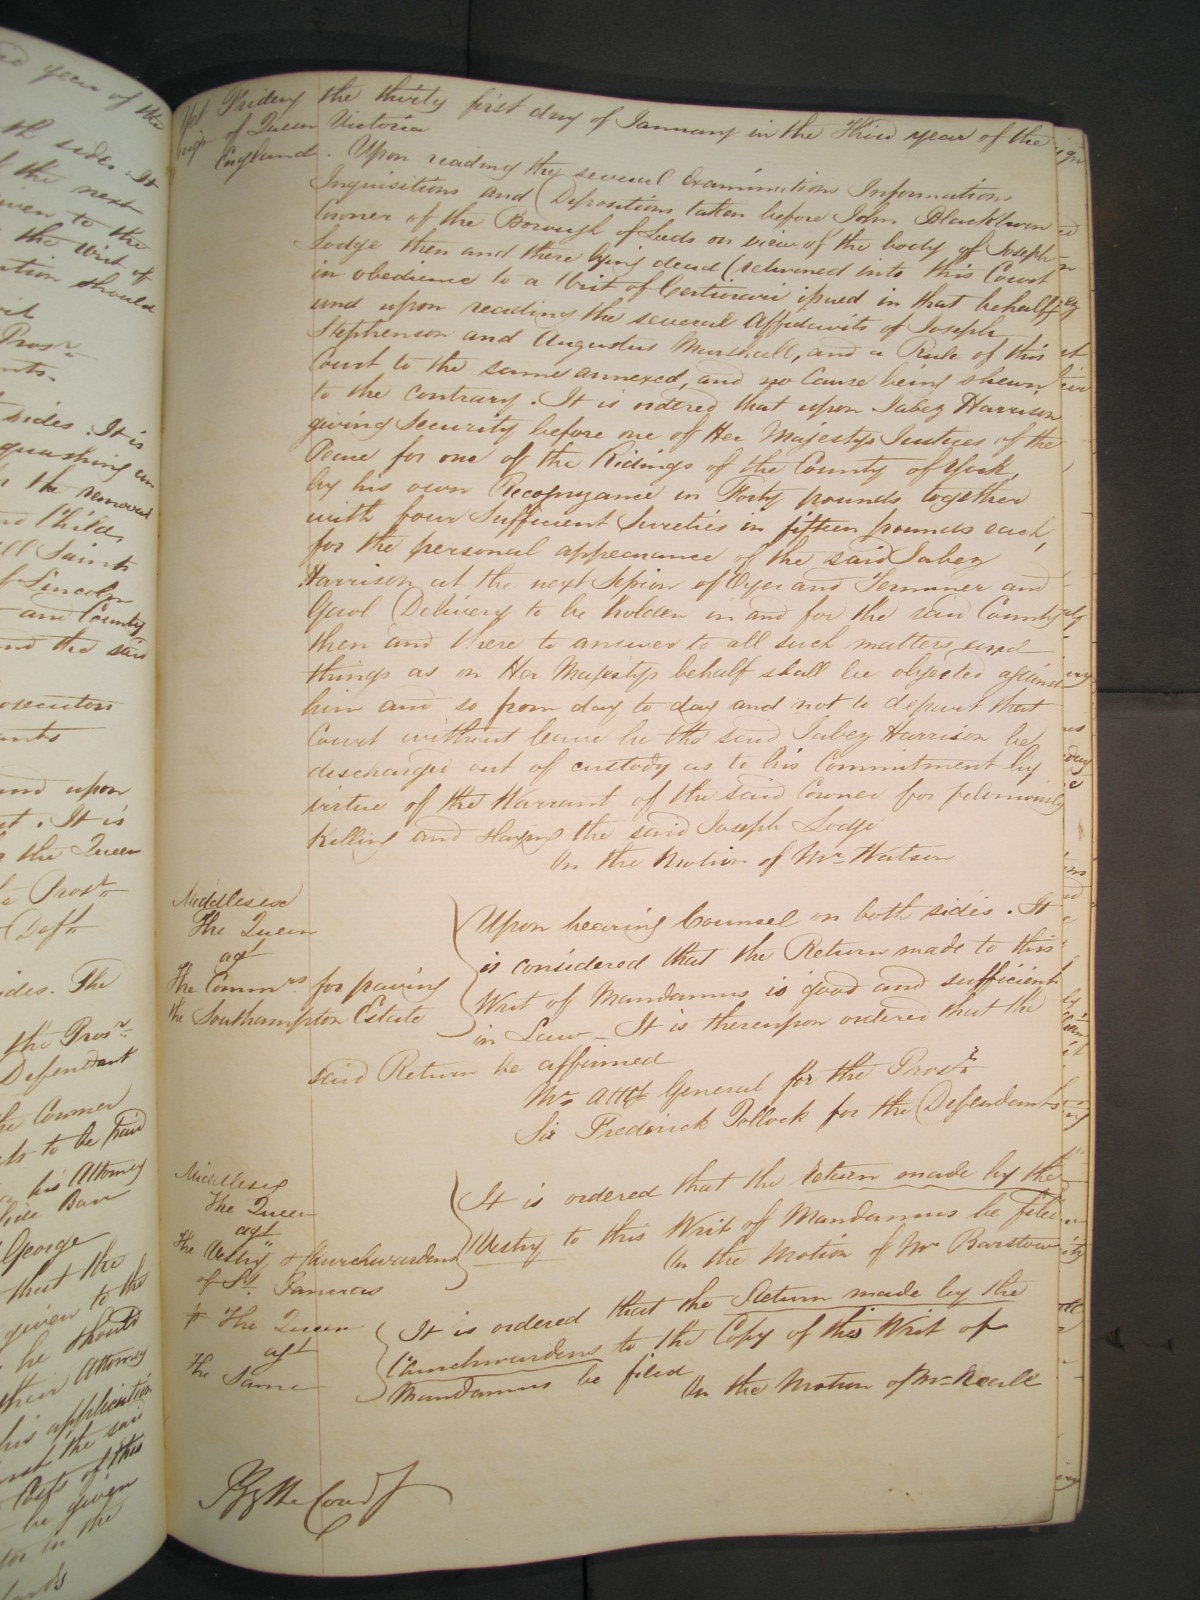 Yet Friday the thirty first day of January in the Third year of the
reign of Queen Victoria
England. Upon reading the several Examinations Informations
Inquisitions and Depositions taken before John Blackburn
Coroner of the Borough of Leeds on view of the body of Joseph
Lodge then and there lying dead (returned into this Court
in obedience to a Writ of Certiorari issued in that behalf)
and upon reading the several Affidavits of Joseph
Stephenson and Augustus Marshall, and a Rule of this
Court to the same annexed, and no Cause being shewn
to the contrary. It is ordered that upon Jabez Harrison
giving Security before one of Her Majestys Justices of the
Peace for one of the Ridings of the County of York,
by his own Recognizance in Forty pounds together
with four sufficient Sureties in fifteen pounds each,
for the personal appearance of the said Jabez
Harrison at the next Session of Oyer and Terminer and
Gaol Delivery to be holden in and for the said County
then and there to answer to all such matters and
things as on Her Majestys behalf shall be objected against
him and so from day to day and not to depart that
Court without leave he the said Jabez Harrison be
discharged out of custody as to his Commitment by
virtue of the Warrant of the said Coroner for feloniously
killing and slaying the said Joseph Lodge
On the Motion of Mr Watson
Middlesex
The Queen
agt
The Commrs for paving
the Southampton Estate
Upon hearing Counsel on both sides. It
is considered that the Return made to this
Writ of Mandamus is good and sufficient
in Law - It is thereupon ordered that the
said Return be affirmed
Mr Atty General for the Prosr
Sir Frederick Pollock for the Defendants
Middlesex
The Queen
agt
The Vestry & Churchwardens
of St. Pancras
It is ordered that the return made by the
Vestry to this Writ of Mandamus be filed
On the Motion of Mr Barstow
The Queen
agt
The Same
It is ordered that the Return made by the
Churchwardens to the Copy of this Writ of
Mandamus be filed
On the Motion of Mr Neale
By the Court